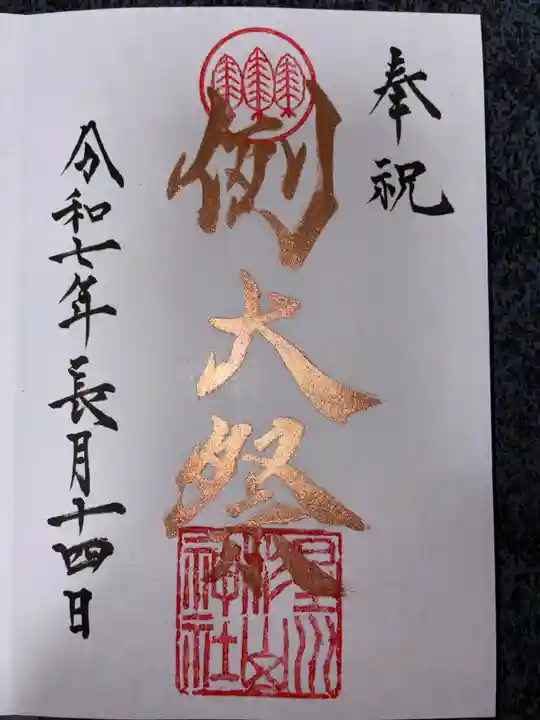 奉祝
例大祭
令和七年長月十四日
星川
杉山
神社